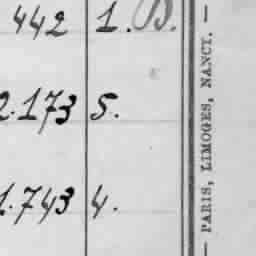 442 1. B.
2.173 5.
1.743 4.
— PARIS, LIMOGES, NANCY. —